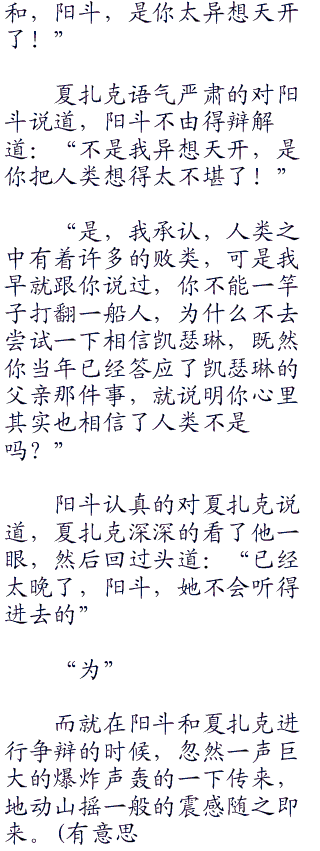 和，阳斗，是你太异想天开
了！”
夏扎克语气严肃的对阳
斗说道，阳斗不由得辩解
道：“不是我异想天开，是
你把人类想得太不堪了！”
“是，我承认，人类之
中有着许多的败类，可是我
早就跟你说过，你不能一竿
子打翻一船人，为什么不去
尝试一下相信凯瑟琳，既然
你当年已经答应了凯瑟琳的
父亲那件事，就说明你心里
其实也相信了人类不是
吗？”
阳斗认真的对夏扎克说
道，夏扎克深深的看了他一
眼，然后回过头道：“已经
太晚了，阳斗，她不会听得
进去的”
“为”
而就在阳斗和夏扎克进
行争辩的时候，忽然一声巨
大的爆炸声轰的一下传来，
地动山摇一般的震感随之即
来。(有意思